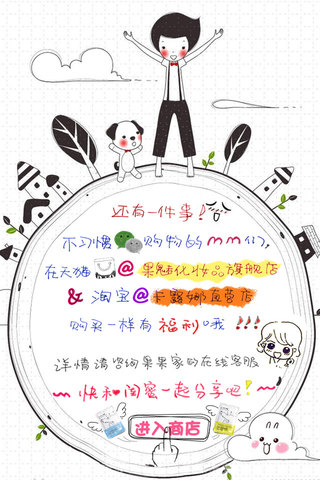 还有一件事!
不习惯 购物的mm们,
在天猫 @果魅化妆品旗舰店
& 淘宝@卡露娜直营店
购买一样有福利哦!!!
详情请咨询果果家的在线客服
~快和闺蜜一起分享吧!~
进入商店